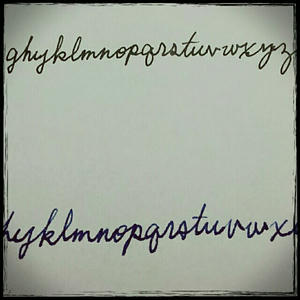 ghyklmnopqrstuvwxyz
hyklmnopqrstuvwx